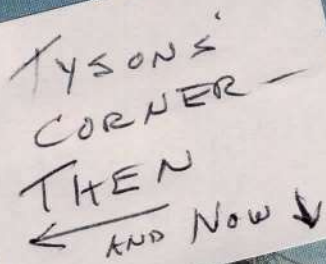 TYSONS'
CORNER —
THEN
← AND NOW ↓